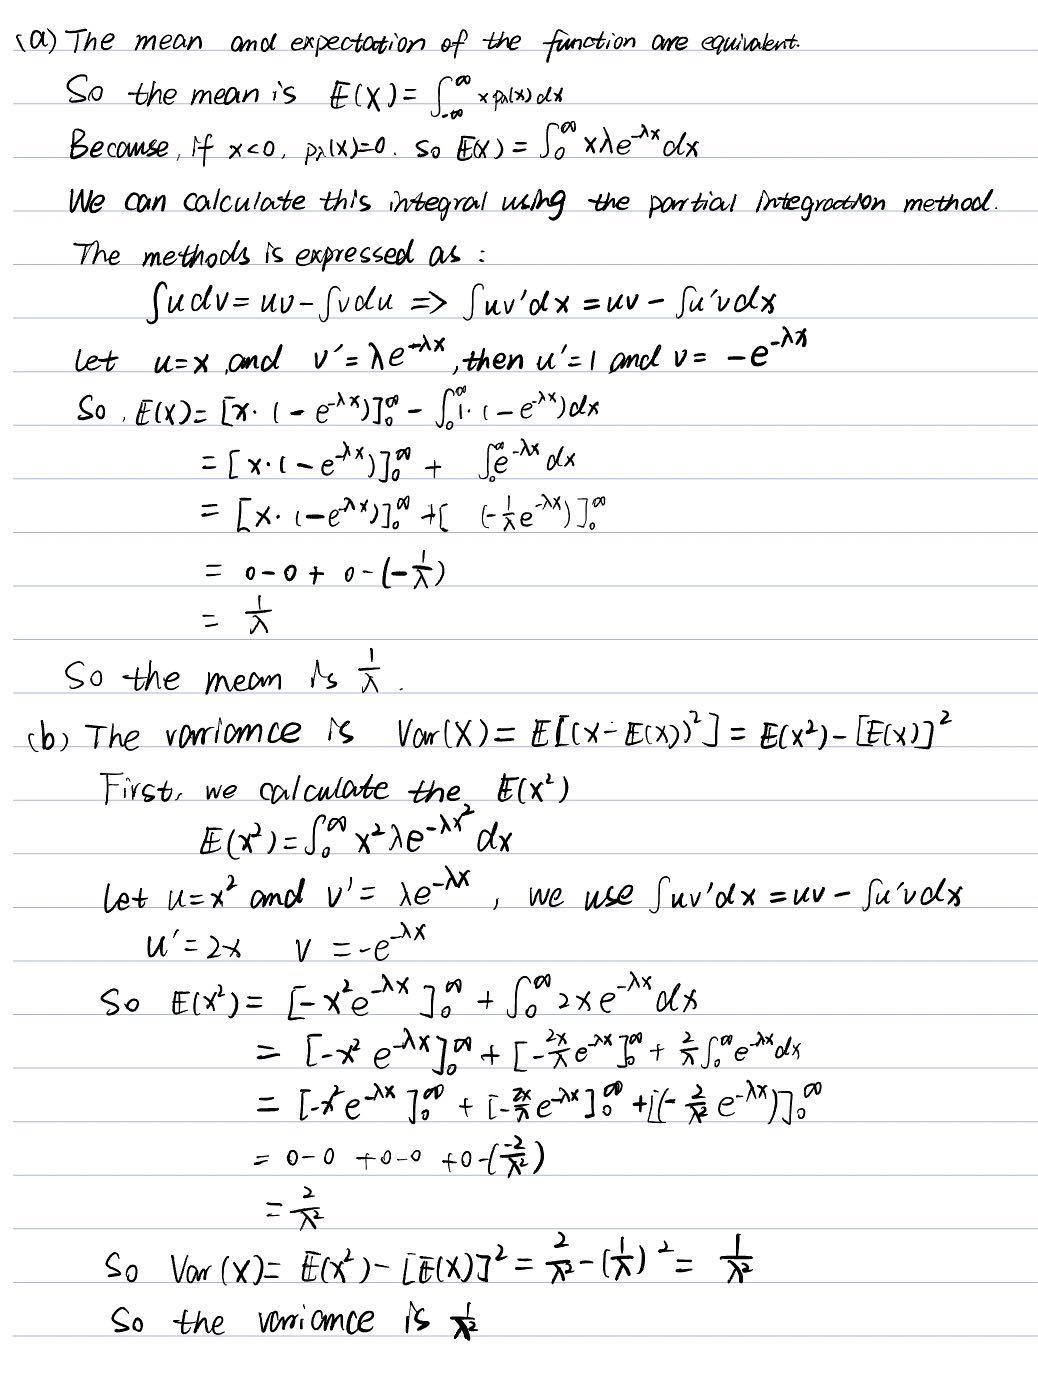 (a) The mean and expectation of the function are equivalent.
So the mean is E(X) = ∫_{-∞}^{∞} x pλ(x) dx
Because, if x<0, pλ(x)=0. so E(X) = ∫_0^∞ xλe^{-λx} dx
We can calculate this integral using the partial integration method.
The methods is expressed as :
∫udv = uv - ∫vdu => ∫uv'dx = uv - ∫u'vdx
Let u=x and v'=λe^{-λx}, then u'=1 and v= -e^{-λx}
So, E(X) = [x·(-e^{-λx})]_0^∞ - ∫_0^∞ 1·(-e^{-λx})dx
= [x·(-e^{-λx})]_0^∞ + ∫_0^∞ e^{-λx} dx
= [x·(-e^{-λx})]_0^∞ + [(-\frac{1}{λ}e^{-λx})]_0^∞
= 0-0 + 0-(-\frac{1}{λ})
= \frac{1}{λ}
So the mean is \frac{1}{λ}.
(b) The variance is Var(X) = E[(X-E(X))^2] = E(X^2) - [E(X)]^2
First, we calculate the E(X^2)
E(X^2) = ∫_0^∞ x^2 λe^{-λx^2} dx
Let u=x^2 and v' = λe^{-λx}, we use ∫uv'dx = uv - ∫u'vdx
u'=2x v = -e^{-λx}
So E(X^2) = [-x^2e^{-λx}]_0^∞ + ∫_0^∞ 2xe^{-λx}dx
= [-x^2 e^{-λx}]_0^∞ + [-\frac{2x}{λ}e^{-λx}]_0^∞ + \frac{2}{λ}∫_0^∞ e^{-λx}dx
= [-x^2e^{-λx}]_0^∞ + [-\frac{2x}{λ}e^{-λx}]_0^∞ + [(-\frac{2}{λ^2}e^{-λx})]_0^∞
= 0-0 +0-0 +0-(\frac{-2}{λ^2})
= \frac{2}{λ^2}
So Var(X) = E(X^2) - [E(X)]^2 = \frac{2}{λ^2} - (\frac{1}{λ})^2 = \frac{1}{λ^2}
So the variance is \frac{1}{λ^2}